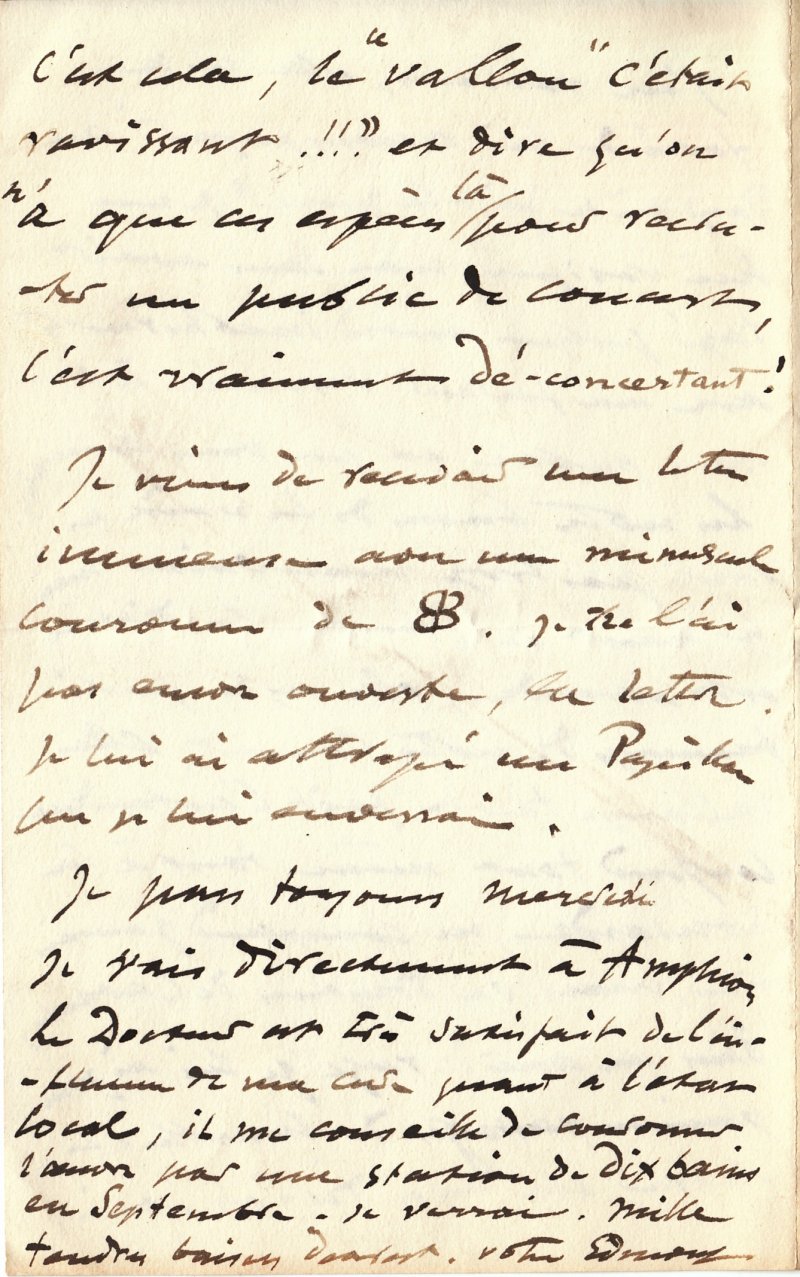 c'est cela, le "vallon" c'était
ravissant !!!" et dire qu'on
n'a que ces espèces là pour recru-
-ter un public de concerts,
c'est vraiment dé-concertant!
Je viens de recevoir une lettre
immense avec une minuscule
couronne de B. je ne l'ai
pas encor ouverte, la lettre.
je lui ai attrapé un
que je lui enverrai.
Je pars toujours mercredi
je vais directement à Amphion
Le Docteur est très satisfait de l'in-
-fluence de ma cure quant à l'état
local, il me conseille de couronner
l'œuvre par une station de dix bains
en Septembre - je verrai. mille
tendres baisers. votre Edmond